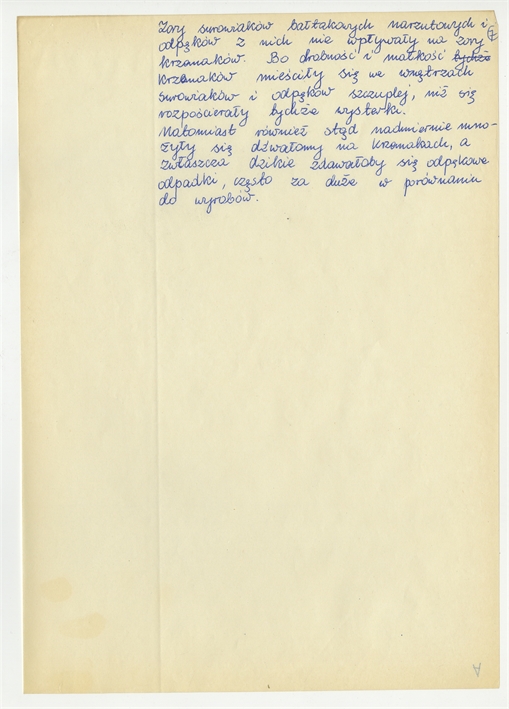 Zory surowiaków bałtakowych narzutowych i
odpęków z nich nie wpływały na zory
krzemaków. Bo drobność i małkość tychże
krzemaków mieściły się we wnętrzach
surowiaków i odpęków szczuplej, niż się
rozpościerały tychże wysterki.
Natomiast również stąd nadmiernie mno-
żyły się dźwałomy na krzemakach, a
zwłaszcza dzikie zdawałoby się odpękowe
odpadki, często za duże w porównaniu
do wyrobów.
7
A